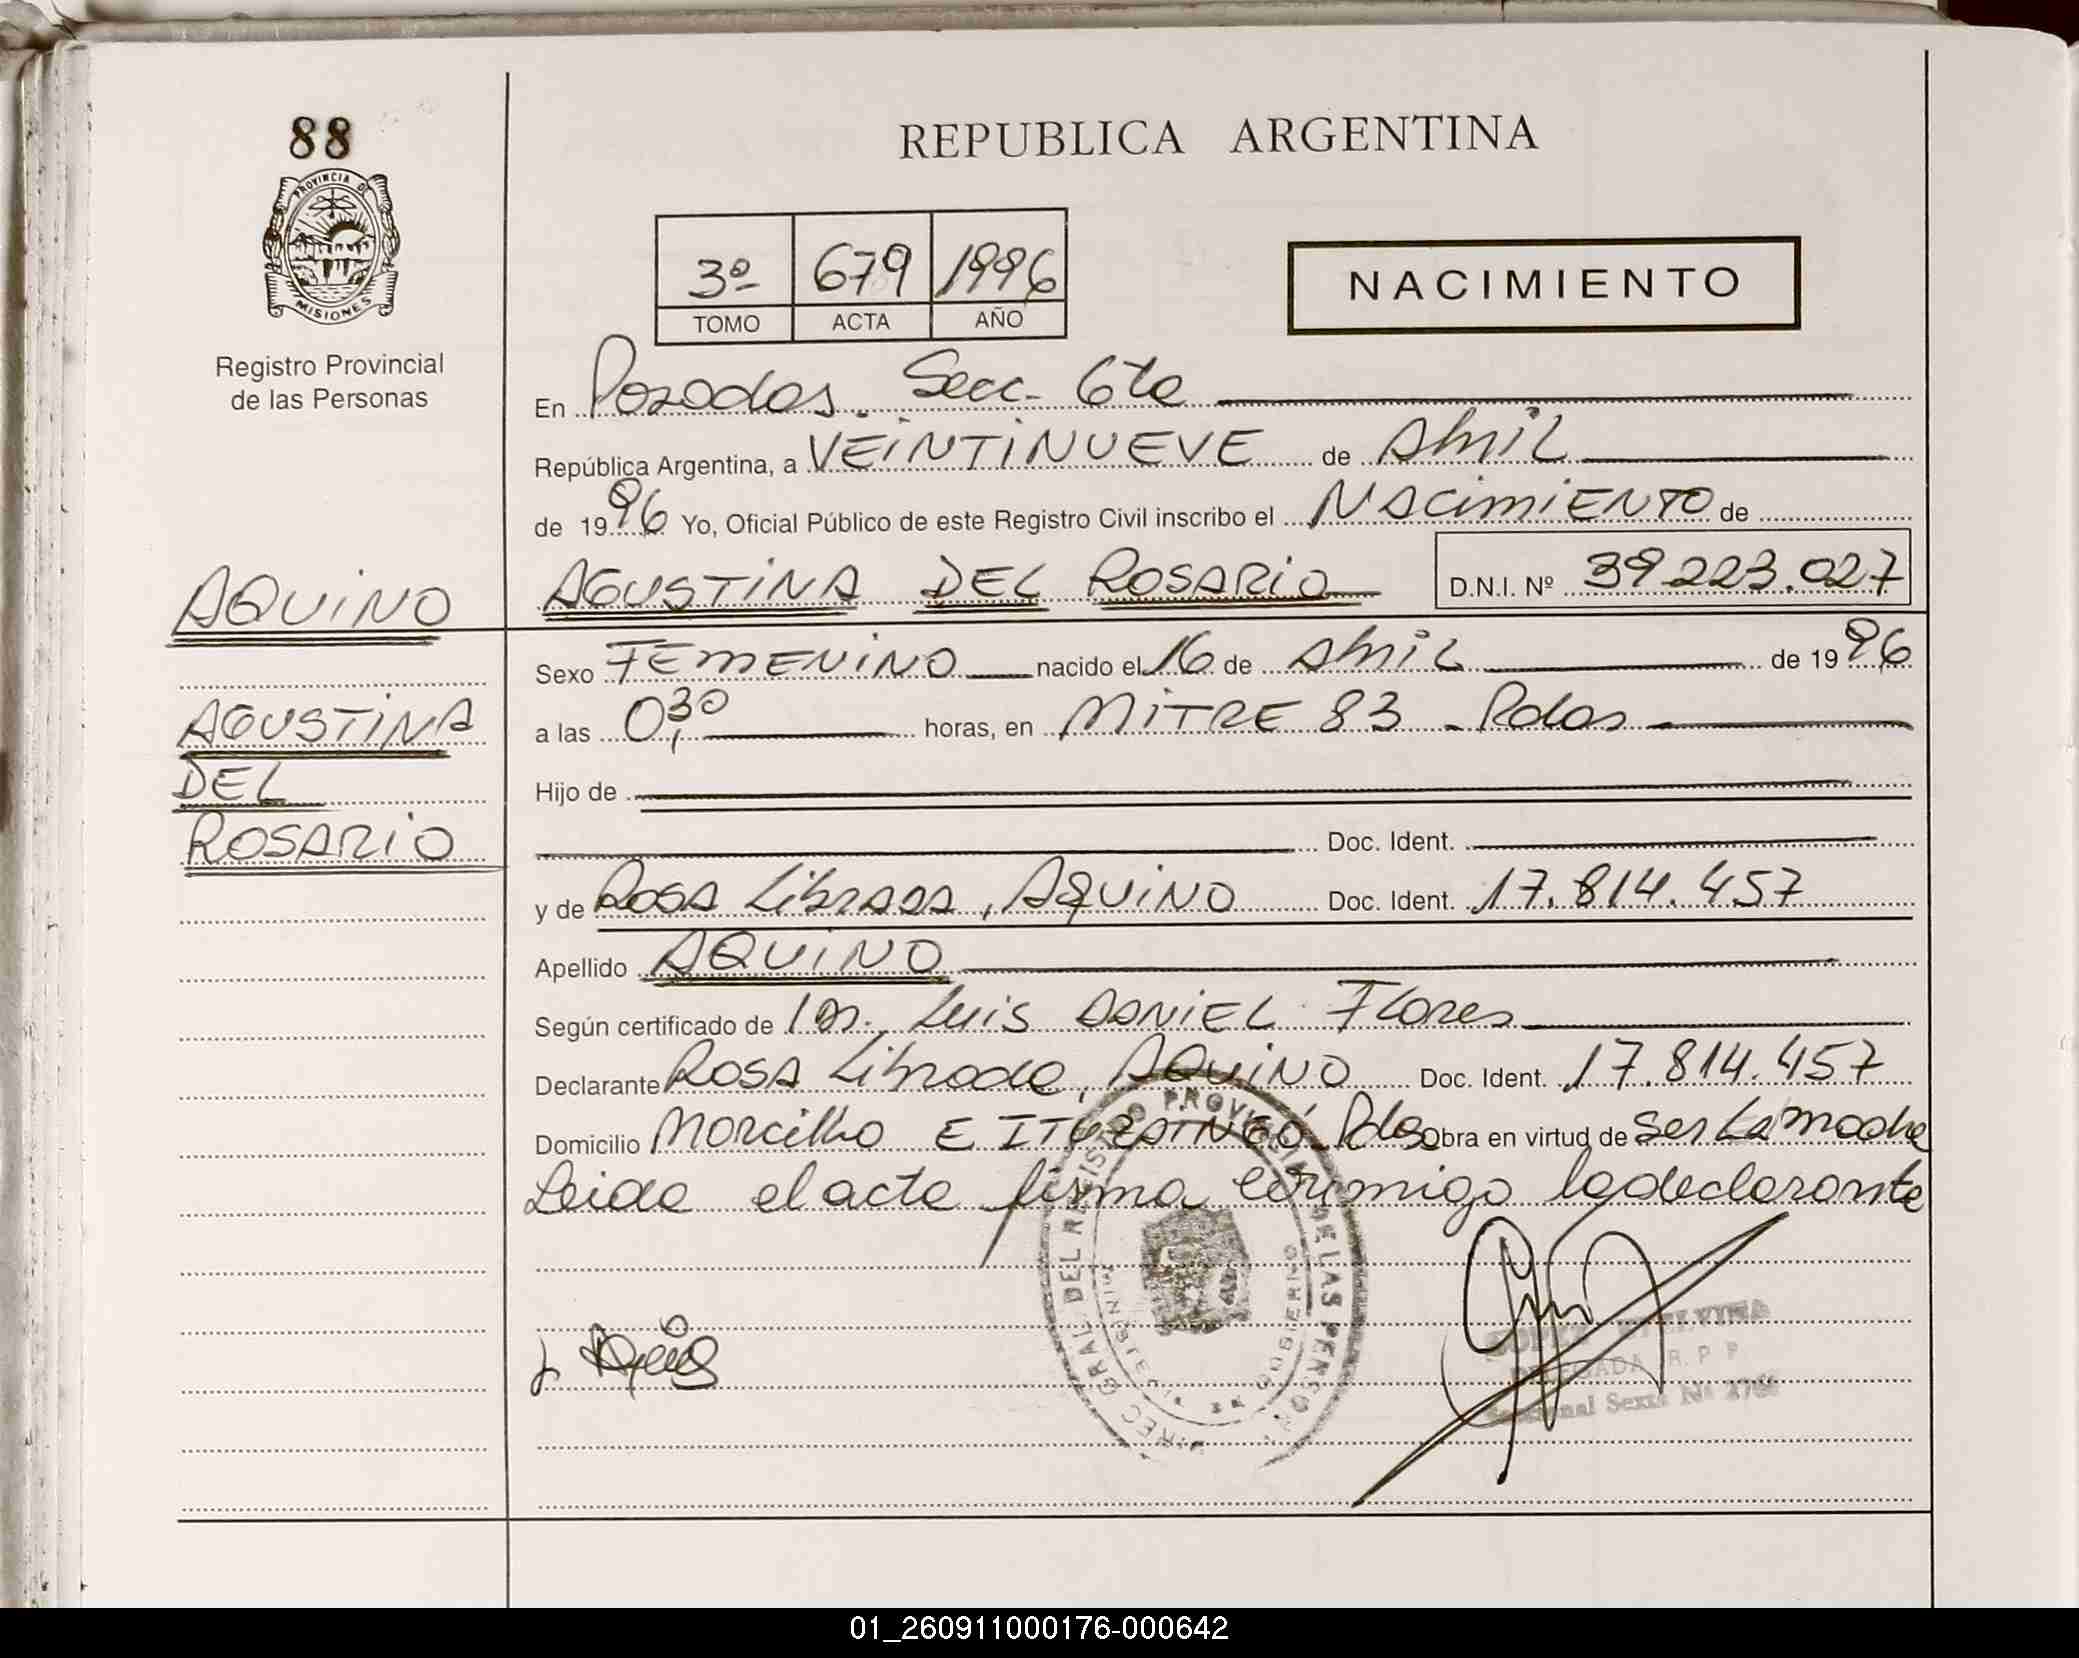 88
PROVINCIA DE
MISIONES
Registro Provincial
de las Personas
REPUBLICA ARGENTINA
3º 679 1996
TOMO ACTA AÑO
NACIMIENTO
En Posadas. Secc. 6ta
República Argentina, a VEINTINUEVE de Abril
de 1996 Yo, Oficial Público de este Registro Civil inscribo el NACIMIENTO de
AGUSTINA DEL ROSARIO D.N.I. Nº 39.223.027
AQUINO
AGUSTINA
DEL
ROSARIO
Sexo FEMENINO nacido el 16 de Abril de 1996
a las 0,30 horas, en MITRE 83 - Pdas
Hijo de
Doc. Ident.
y de Rosa Librada, AQUINO Doc. Ident. 17.814.457
Apellido AQUINO
Según certificado de Dr. Luis DANIEL Flores
Declarante Rosa Librada, AQUINO Doc. Ident. 17.814.457
Domicilio Morcillo E Pdas Obra en virtud de Ser La madre
Leida el acta firma conmigo la declarante
DIREC. GRAL. DEL REGISTRO PROVINCIAL DE LAS PERSONAS
DE GOBIERNO
DELEGADA R. P. P.
Seccional Sexta Nº
01_260911000176-000642